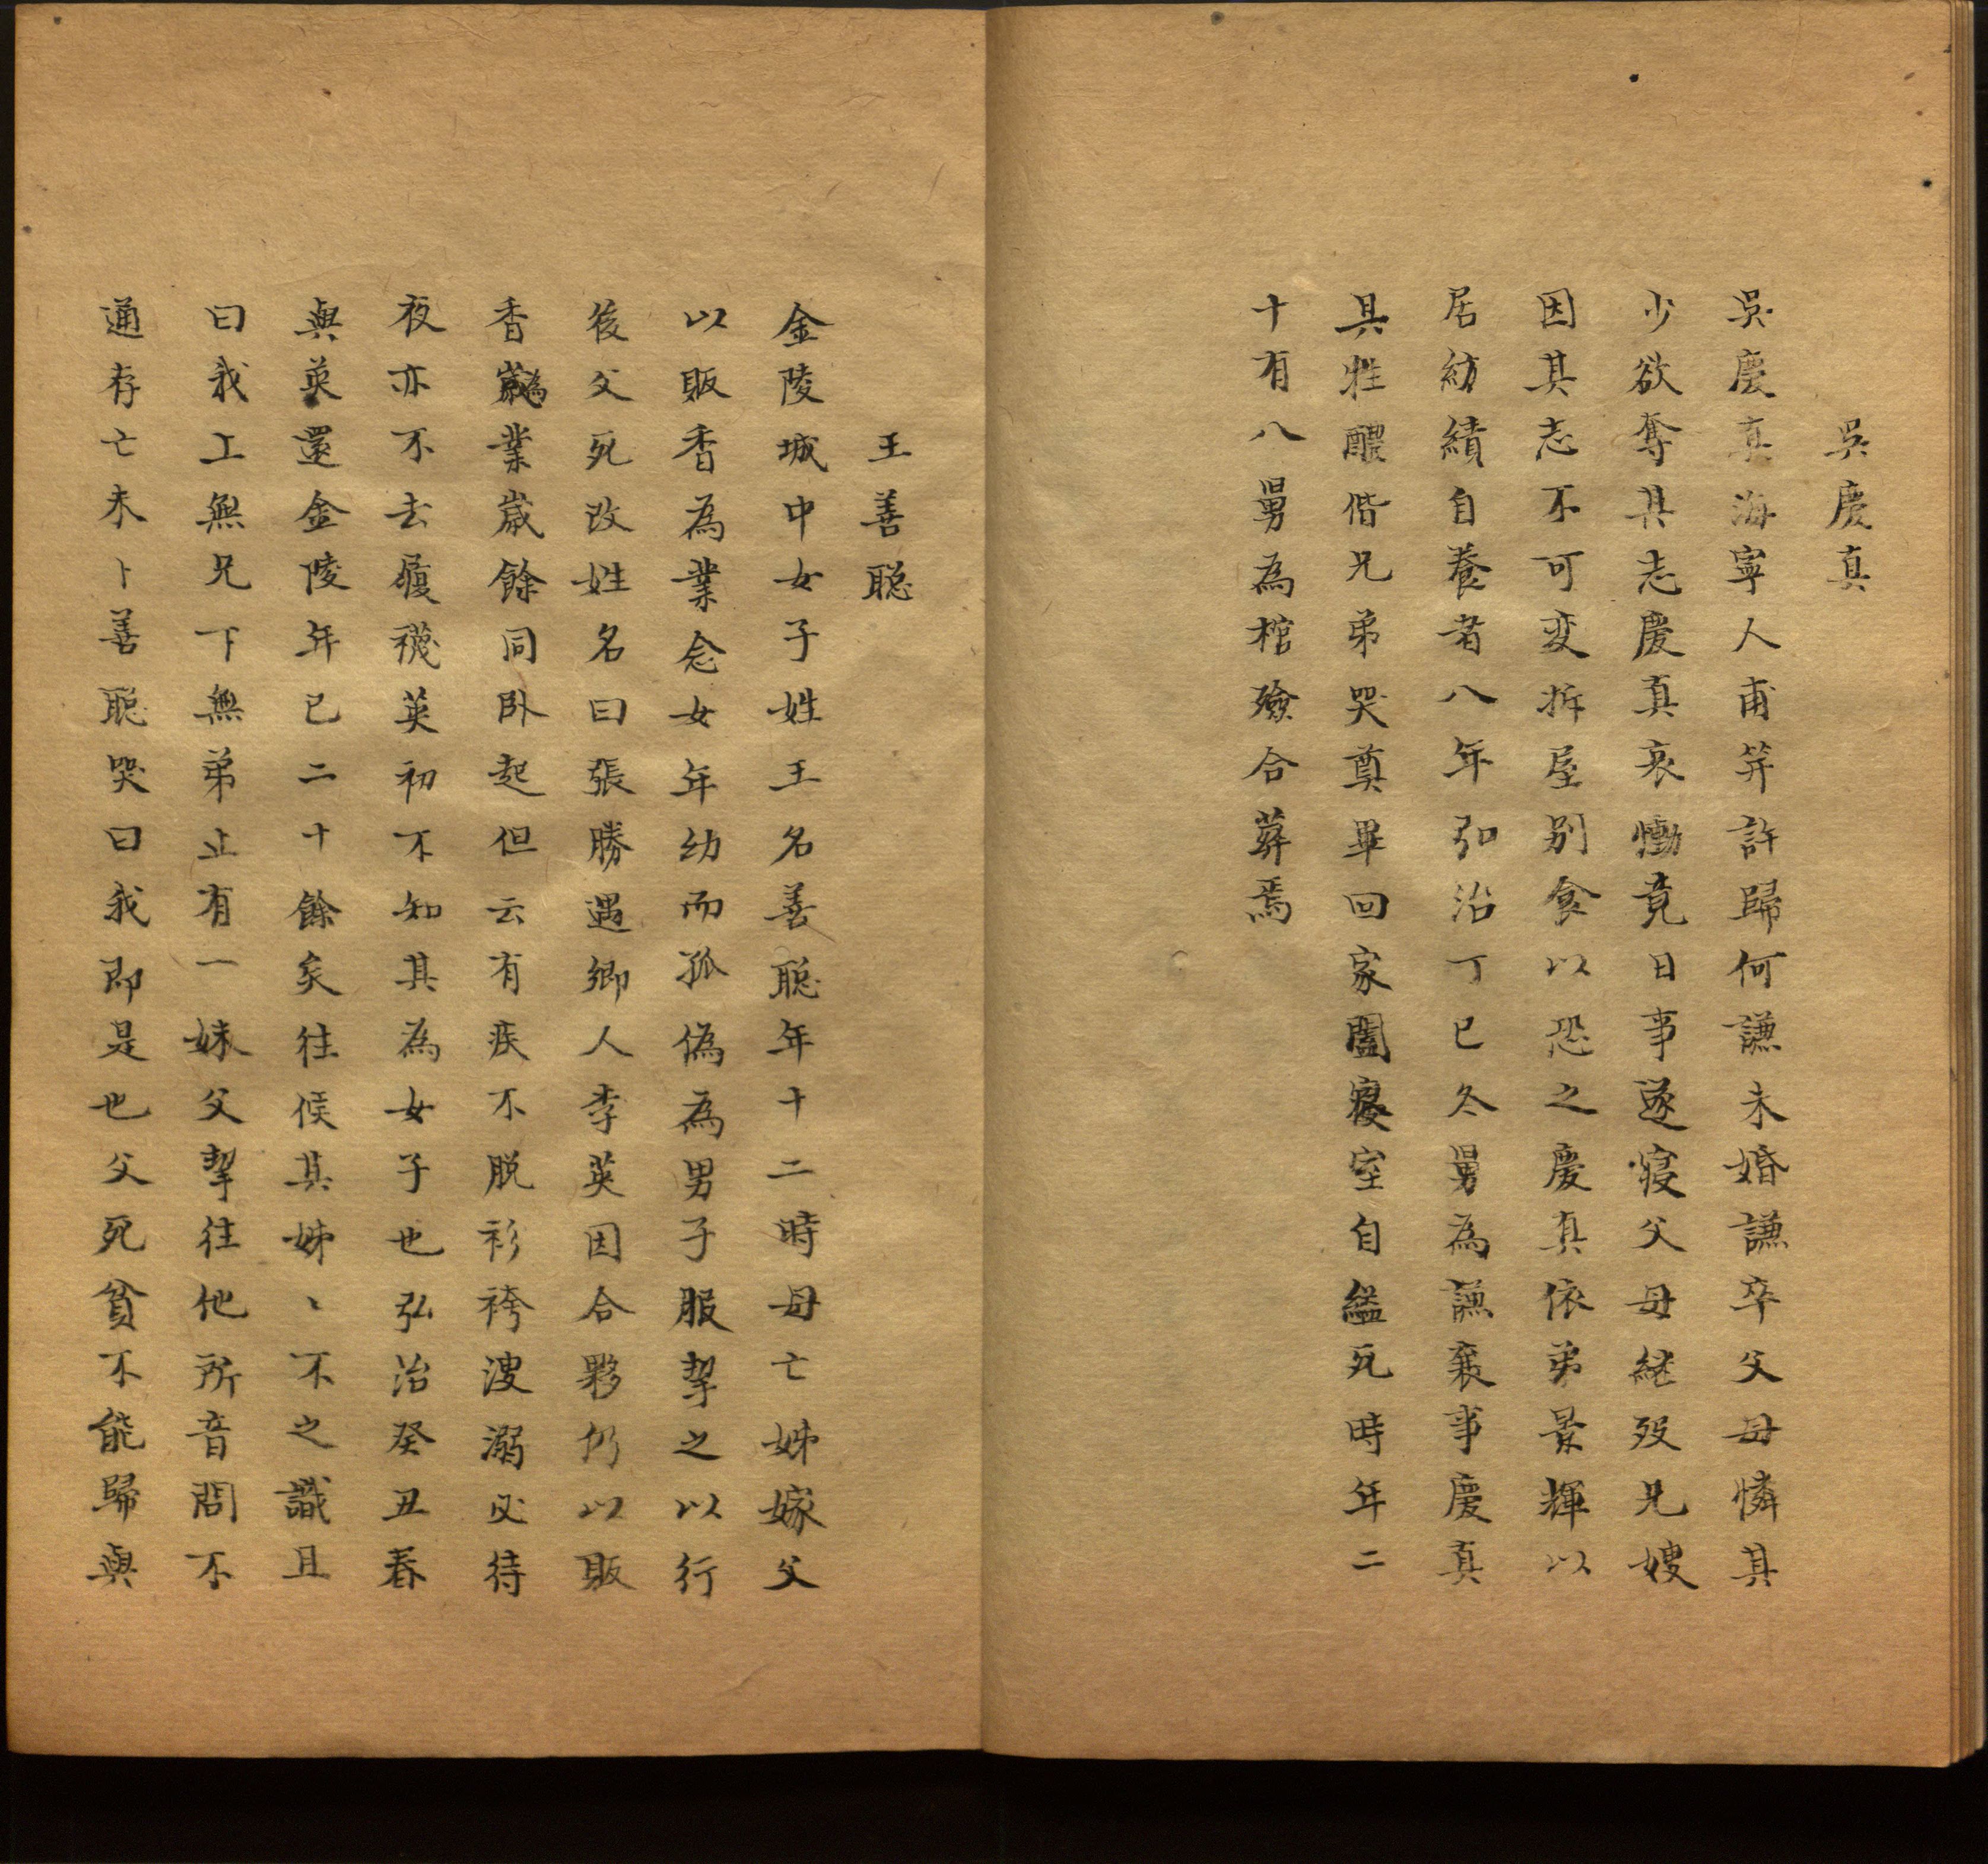 吳慶真
吳慶真海寧人甫笄許歸何謙未婚謙卒父母憐其
少欲奪其志慶真哀慟竟日事遂寢父母継歿兄嫂
因其志不可変拆屋别食以恐之慶真依弟景輝以
居紡績自養者八年弘治丁巳冬舅為謙襄事慶真
具牲醴偕兄弟哭奠畢回家闔寢室自縊死時年二
十有八舅為棺殮合葬焉
王善聡
金陵城中女子姓王名善聡年十二時母亡姊嫁父
以販香為業念女年幼而孤偽為男子服挈之以行
後父死改姓名曰張勝遇鄉人李英因合夥仍以販
香為業歲餘同卧起但云有疾不脱衫袴溲溺必待
夜亦不去履襪英初不知其為女子也弘治癸丑春
與英還金陵年已二十餘矣往候其姊〻不之識且
曰我上無兄下無弟止有一妹父挈往他所音問不
通存亡未卜善聡哭曰我即是也父死貧不能歸與